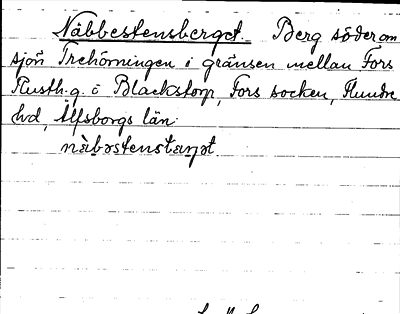 Näbbestensberget. Berg söder om
sjön Trehörningen i gränsen mellan Fors
Rusth.g. o Blackstorp, Fors socken, Flundre
hd, Älfsborgs län.
nàbəstenstaŋət